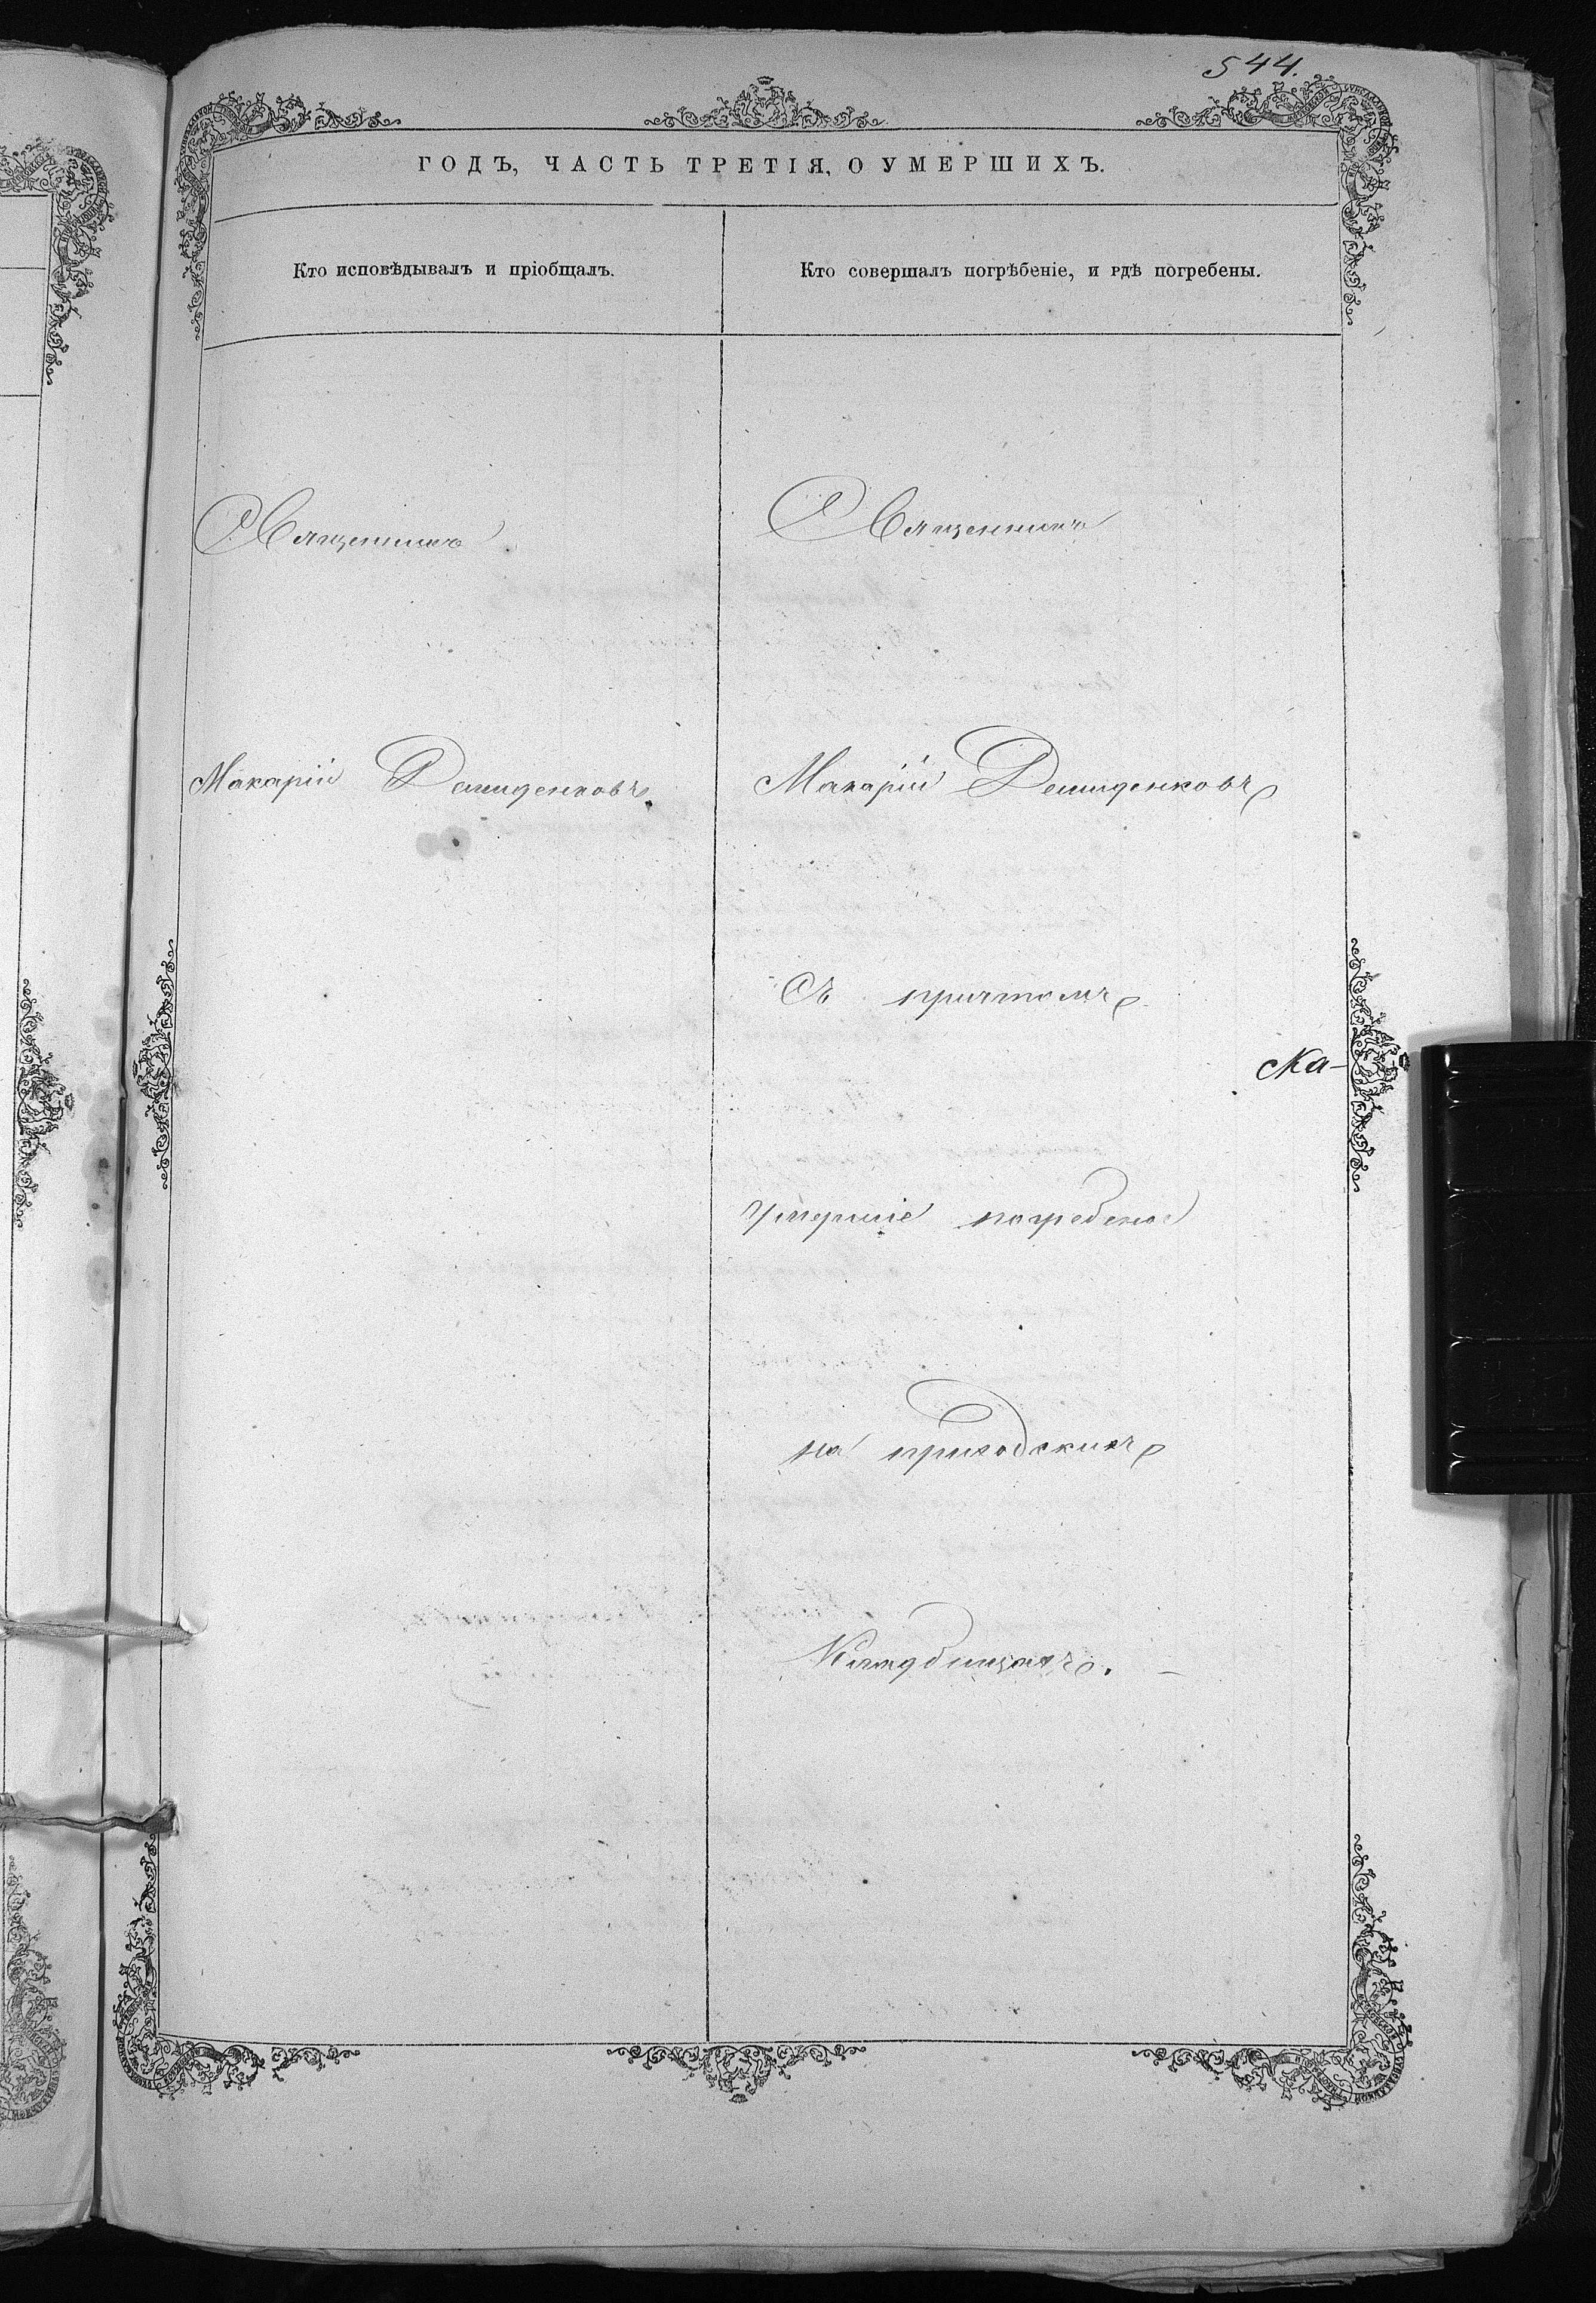 544.
ГОДЪ, ЧАСТЬ ТРЕТІЯ, О УМЕРШИХЪ.
Кто исповѣдывалъ и пріобщалъ.
Кто совершалъ погрѣбеніе, и гдѣ погребены.
Священникъ
Макарій Демиденковъ
Священникъ
Макарій Демиденковъ
Съ причтомъ
умершіе погребены
на приходскихъ
Кладбищахъ.